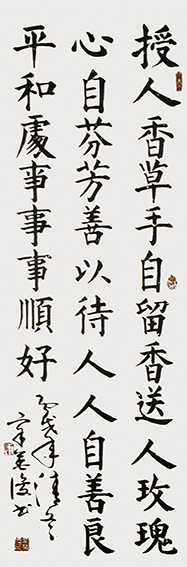 授人香草手自留香送人玫瑰
心自芬芳善以待人人自善良
平和處事事事順好